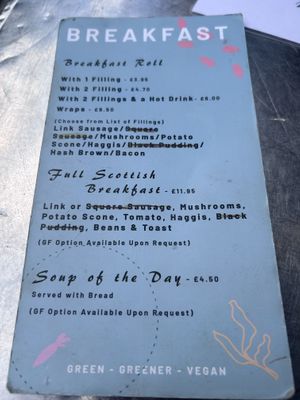 BREAKFAST
Breakfast Roll
With 1 Filling - £3.95
With 2 Filling - £4.70
With 2 Fillings & a Hot Drink- £6.00
Wraps - £5.50
(Choose from List of Fillings)
Link Sausage/Square
Sausage/Mushrooms/Potato
Scone/Haggis/Black Pudding/
Hash Brown/Bacon
Full Scottish
Breakfast - £11.95
Link or Square Sausage, Mushrooms,
Potato Scone, Tomato, Haggis, Black
Pudding, Beans & Toast
(GF Option Available Upon Request)
Soup of the Day - £4.50
Served with Bread
(GF Option Available Upon Request)
GREEN - GREENER - VEGAN